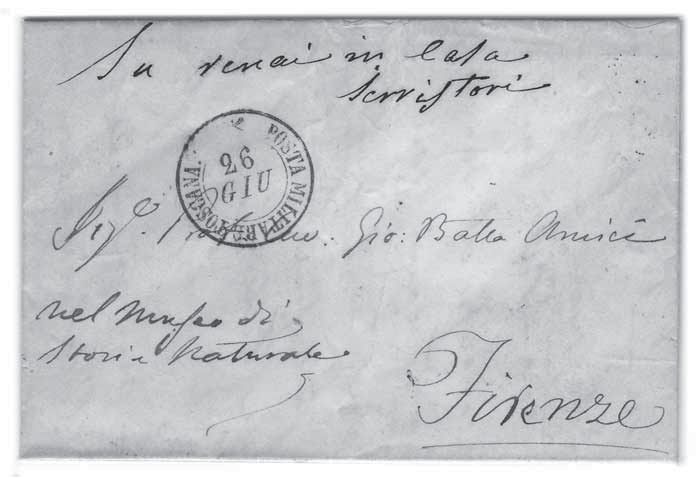 Su renai in Casa
Serristori
POSTA MILITARE TOSCANA.
26
GIU
Sigr. Professore. Gio: Batta Amici
nel Museo di
Storia Naturale
Firenze